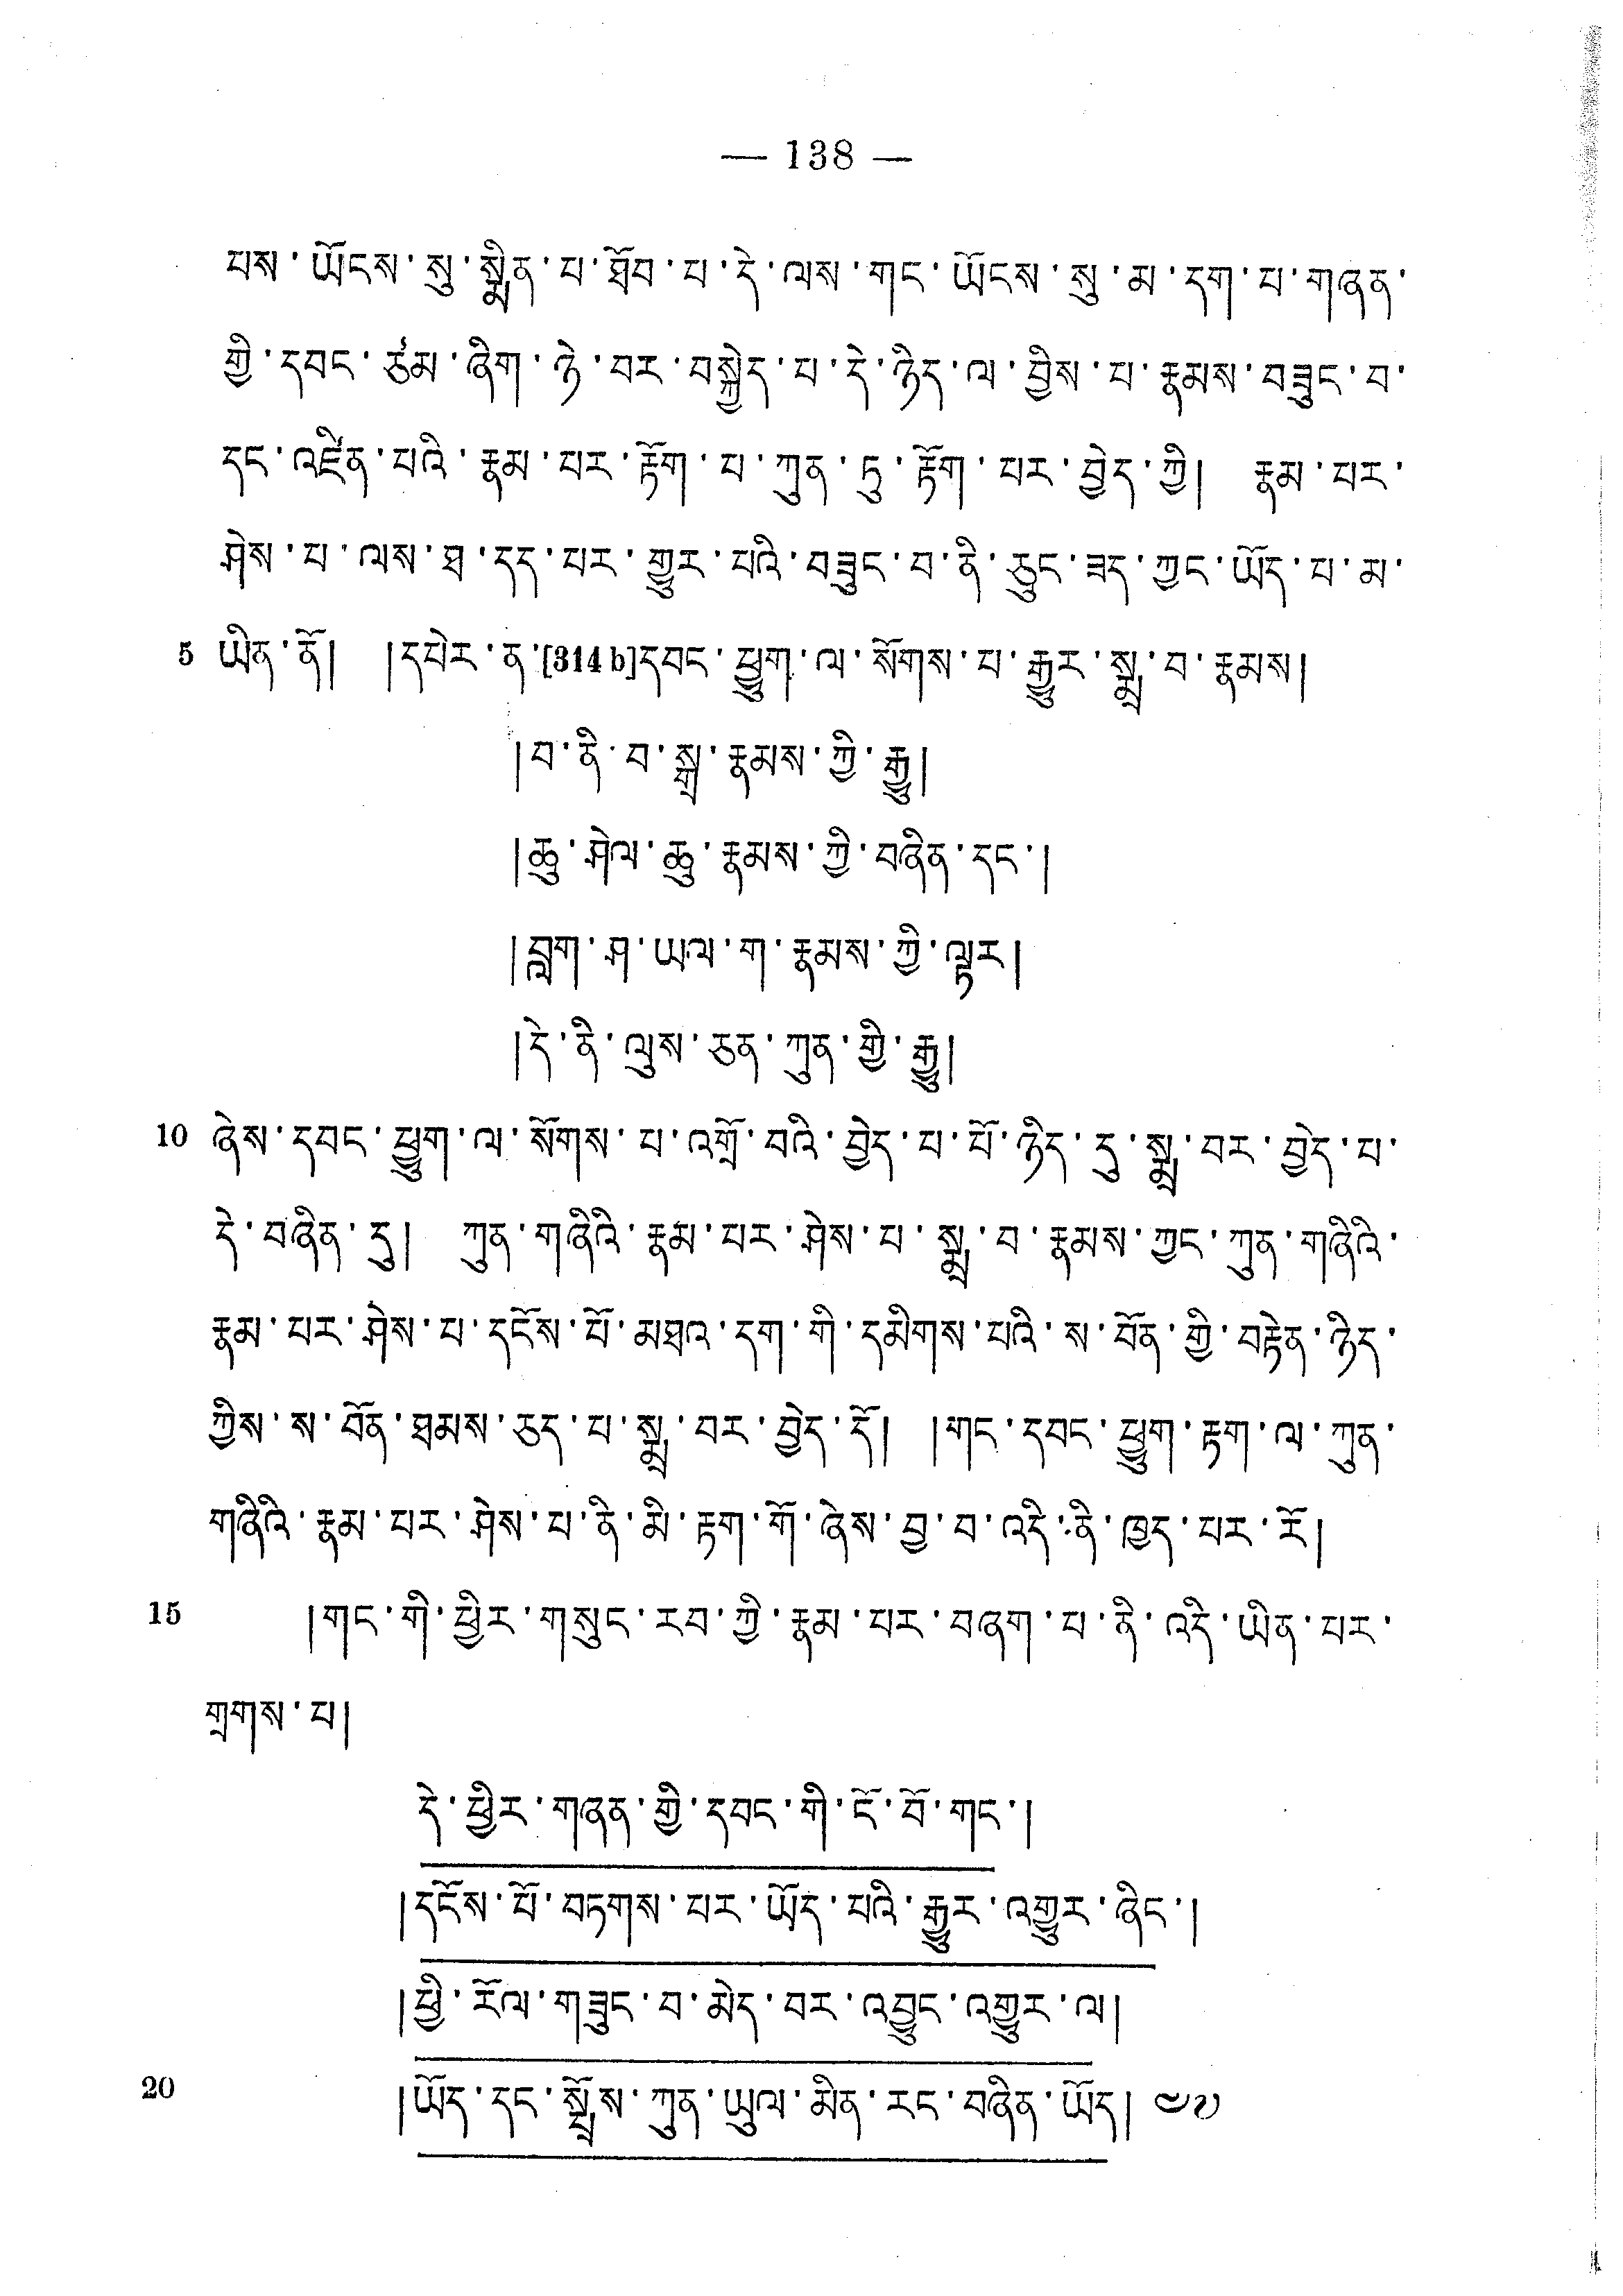 — 138 —
པས་ཡོངས་སུ་སྨིན་པ་ཐོབ་པ་དེ་ལས་གང་ཡོངས་སུ་མ་དག་པ་གཞན་
གྱི་དབང་ཙམ་ཞིག་ཉེ་བར་བསྐྱེད་པ་དེ་ཉིད་ལ་བྱིས་པ་རྣམས་བཟུང་བ་
དང་འཛིན་པའི་རྣམ་པར་རྟོག་པ་ཀུན་ཏུ་རྟོག་པར་བྱེད་ཀྱི། རྣམ་པར་
ཤེས་པ་ལས་ཐ་དད་པར་གྱུར་པའི་བཟུང་བ་ནི་ཅུང་ཟད་ཀྱང་ཡོད་པ་མ་
5 ཡིན་ནོ། །དཔེར་ན་[314 b]དབང་ཕྱུག་ལ་སོགས་པ་རྒྱུར་སྨྲ་བ་རྣམས།
།བ་ནི་བ་སྒྲ་རྣམས་ཀྱི་རྒྱུ།
།ཆུ་ཤེལ་ཆུ་རྣམས་ཀྱི་བཞིན་དང་།
།བླག་ཤ་ཡལ་ག་རྣམས་ཀྱི་ལྟར།
།དེ་ནི་ལུས་ཅན་ཀུན་གྱི་རྒྱུ།
10 ཞེས་དབང་ཕྱུག་ལ་སོགས་པ་འགྲོ་བའི་བྱེད་པ་པོ་ཉིད་དུ་སྨྲ་བར་བྱེད་པ་
དེ་བཞིན་དུ། ཀུན་གཞིའི་རྣམ་པར་ཤེས་པ་སྨྲ་བ་རྣམས་ཀྱང་ཀུན་གཞིའི་
རྣམ་པར་ཤེས་པ་དངོས་པོ་མཐའ་དག་གི་དམིགས་པའི་ས་བོན་གྱི་བརྟེན་ཉིད་
ཀྱིས་ས་བོན་ཐམས་ཅད་པ་སྨྲ་བར་བྱེད་དོ། །གང་དབང་ཕྱུག་རྟག་ལ་ཀུན་
གཞིའི་རྣམ་པར་ཤེས་པ་ནི་མི་རྟག་གོ་ཞེས་བྱ་བ་འདི་ནི་ཁྱད་པར་རོ།
15 །གང་གི་ཕྱིར་གསུང་རབ་ཀྱི་རྣམ་པར་བཞག་པ་ནི་འདི་ཡིན་པར་
གྲགས་པ།
དེ་ཕྱིར་གཞན་གྱི་དབང་གི་ངོ་བོ་གང་།
།དངོས་པོ་བཏགས་པར་ཡོད་པའི་རྒྱུར་འགྱུར་ཞིང་།
།ཕྱི་རོལ་གཟུང་བ་མེད་བར་འབྱུང་འགྱུར་ལ།
20 །ཡོད་དང་སྤྲོས་ཀུན་ཡུལ་མིན་རང་བཞིན་ཡོད། ༤༧